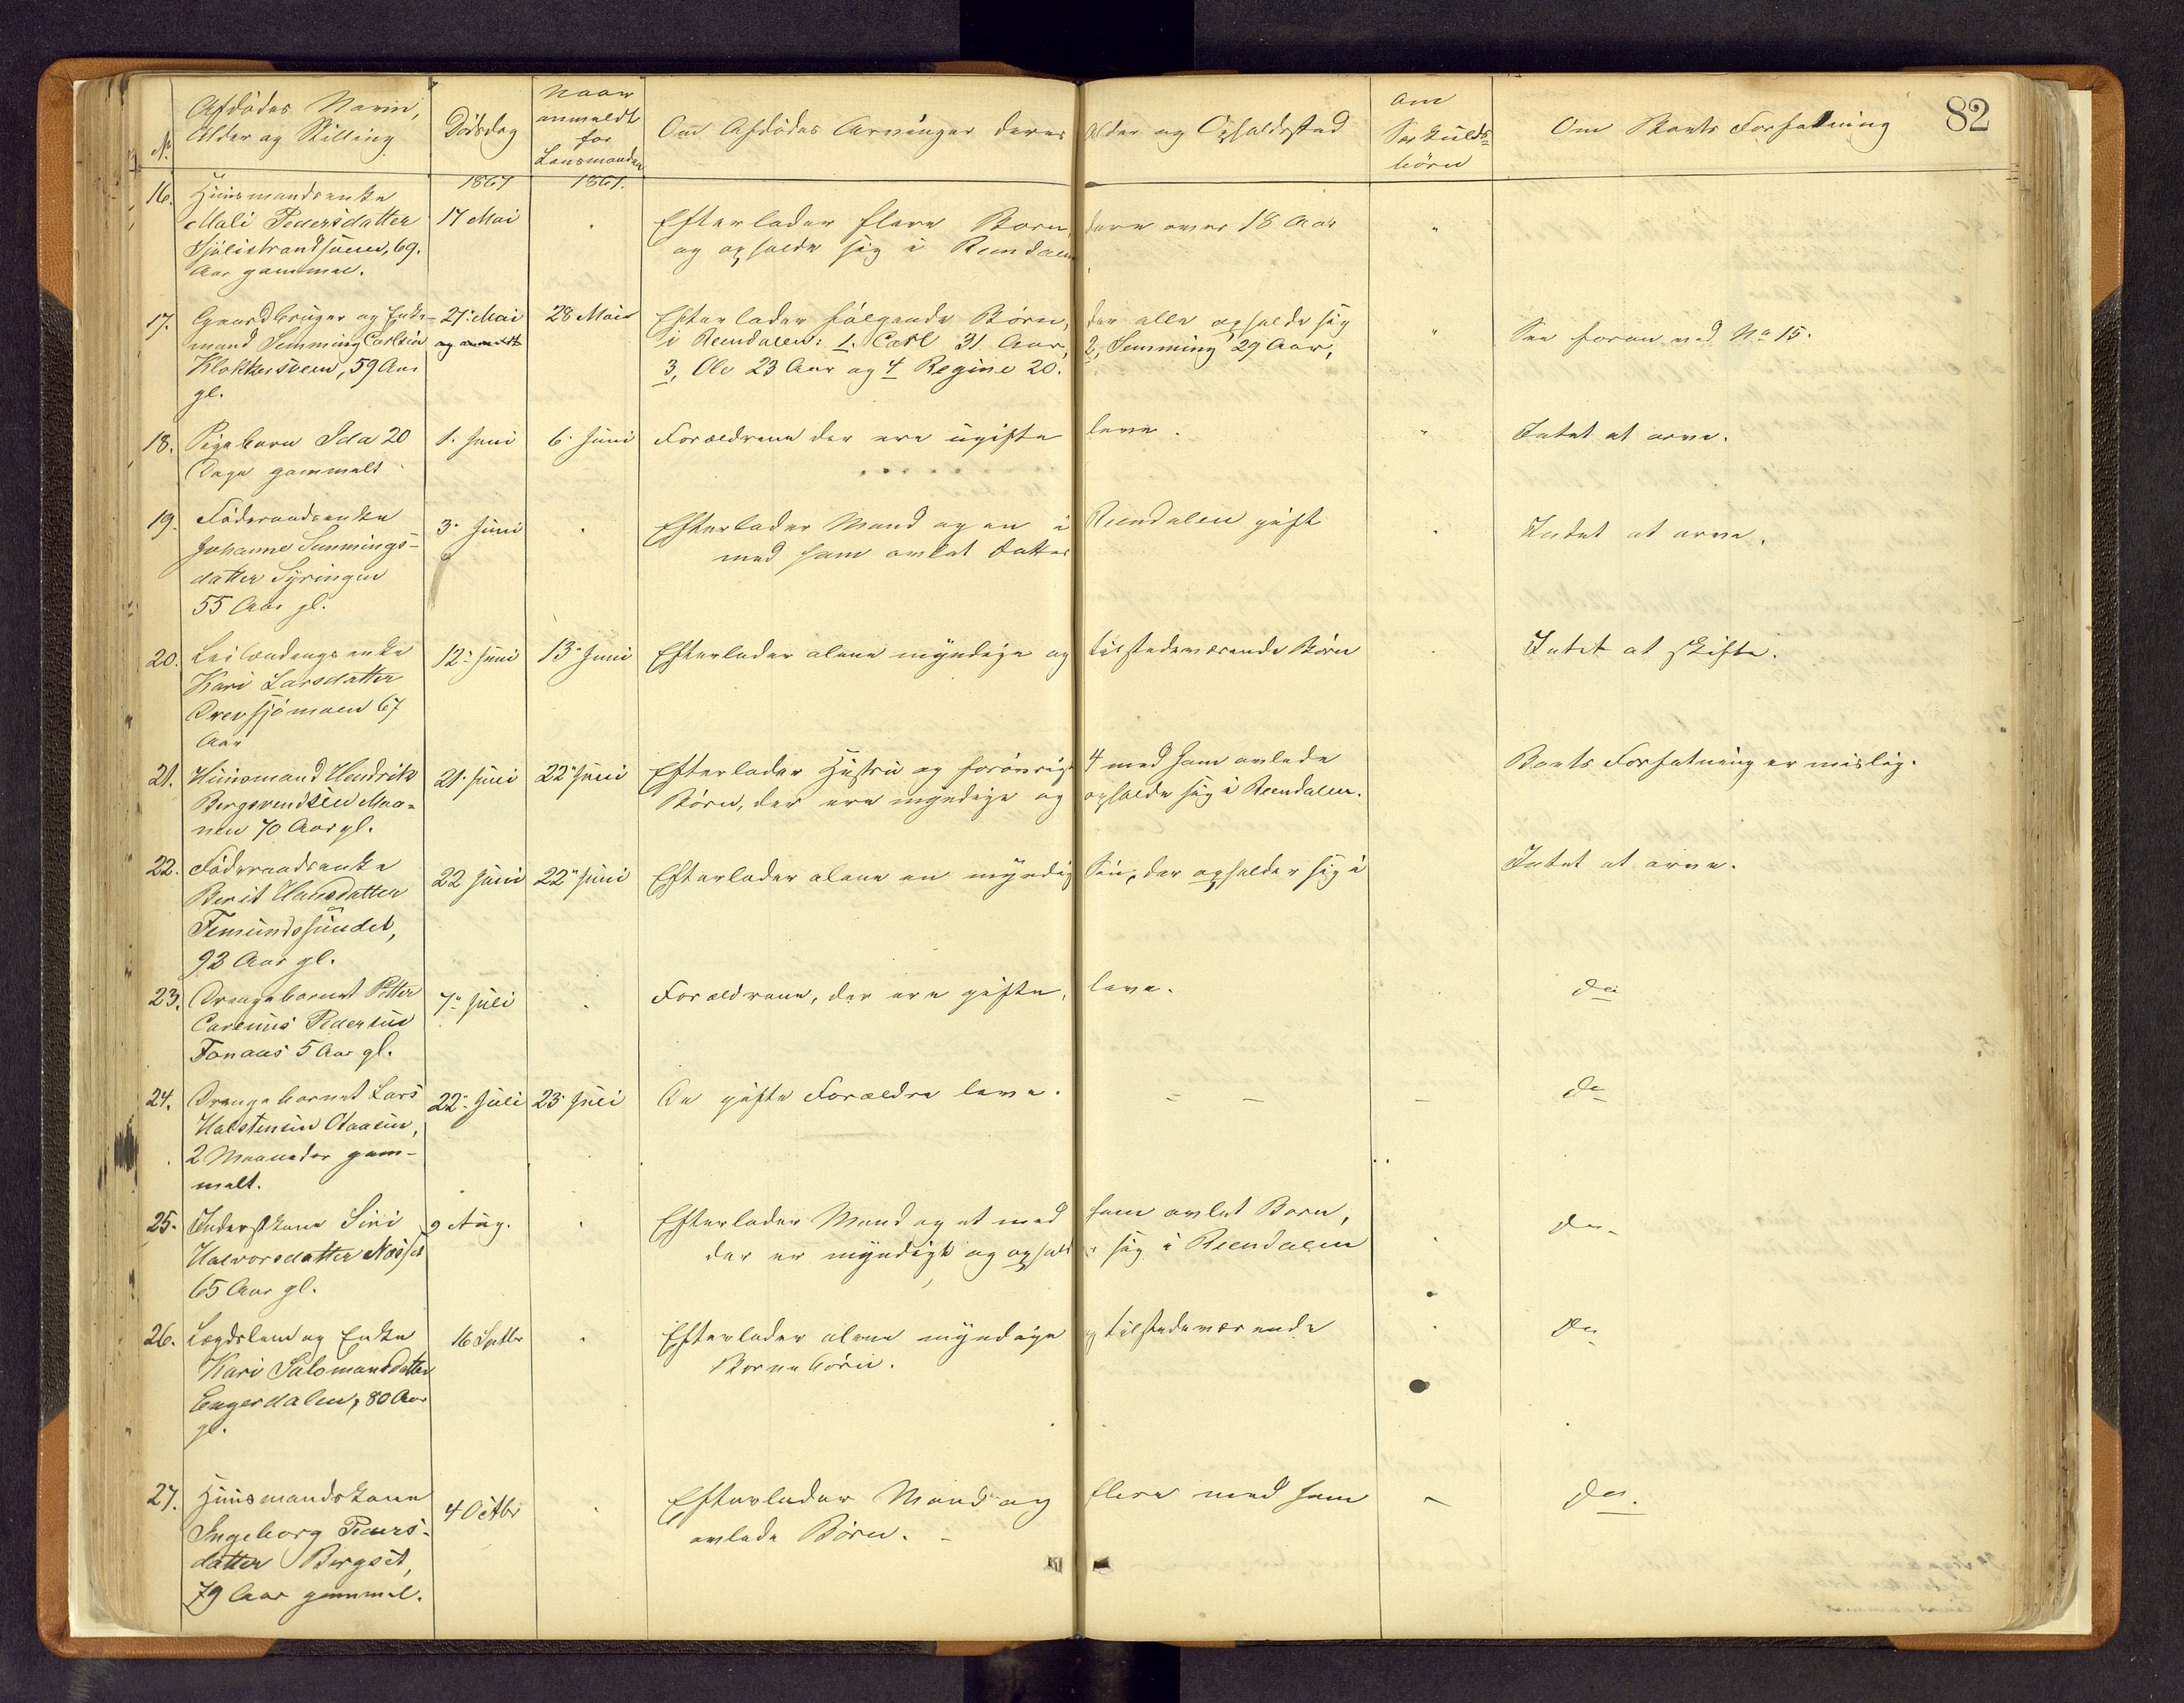 82
No.
Afdödes Navn,
Alder og Stilling
Dödsdag
Naar
anmeldt
for
Lensmanden
Om Afdödes Arvinger deres Alder og Opholdssted
Om
Særkulds=
börn
Om Boets Forfatning
1867 1867.
16. Huusmandsenke
Mali Pedersdatter 17 Mai Efterlader flere Børn, dere over 18 Aar
69.
og opholde sig i Reendalen
Aar gammel.
17. Gaardbruger og Enke- 27de Mai 28 Mai Efterlader følgende Börn, der alle opholde sig
mand Semming Carlsen og anmeldt i Reendalen: 1. Carl 31 Aar, 2, Semming 29 Aar, See foran ved No 15.
59 Aar 3, Ole 23 Aar og 4 Regine 20.
gl.
18. Pigebarn Ida 20 1. Juni 6. Juni Forældrene der ere ugifte leve. Intet at arve.
Dage gammelt
19. Föderaadsenke
Johanne Semmings- 3. Juni Efterlader Mand og en i Reendalen gift Intet at arve.
datter Syringen med ham avlet Datter
55 Aar gl.
20. Leilændingsenke 12te Juni 13de Juni Efterlader alene myndige og tilstedeværende Börn Intet at skifte.
Kari Larsdatter
Drevsjömoen 67
Aar
21. Huusmand Hendrik 21. Juni 22de Juni Efterlader Hustru og forövrigt 4 med ham avlede Boets Forfatning er mislig.
Bergsvendsen Moa- Börn, der ere myndige og opholde sig i Reendalen.
nen 70 Aar gl.
22. Föderaadsenke 22 Juni 22de Juni Efterlader alene en myndig Sön, der opholder sig i Intet at arve.
Berit Hansdatter
Femundssundet,
92 Aar gl.
23. Drengebarnet Petter 7de Juli Forældrene, der ere gifte, leve. do
Carenius Pedersen
Fonaas 5 Aar gl.
24. Drengebarnet Lars 22de Juli 23 Juli De gifte Forældre leve. do
Halstensen Aaasen,
2 Maaneder gam-
melt.
25. Inderstkone Siri 9 Aug. Efterlader Mand og et med ham avlet Barn, do
Halvorsdatter der er myndigt og opholder sig i Reendalen
65 Aar gl.
26. Lægdslem og Enke 16 Septbr Efterlader alene myndige og tilstedeværende do
Kari Salomonsdatter Börnebörn.
Engerdalen, 80 Aar
gl.
27. Huusmandskone 4 Octbr Efterlader Mand og flere med ham do.
Ingeborg Peders- avlede Börn.
datter Bergset,
79 Aar gammel.